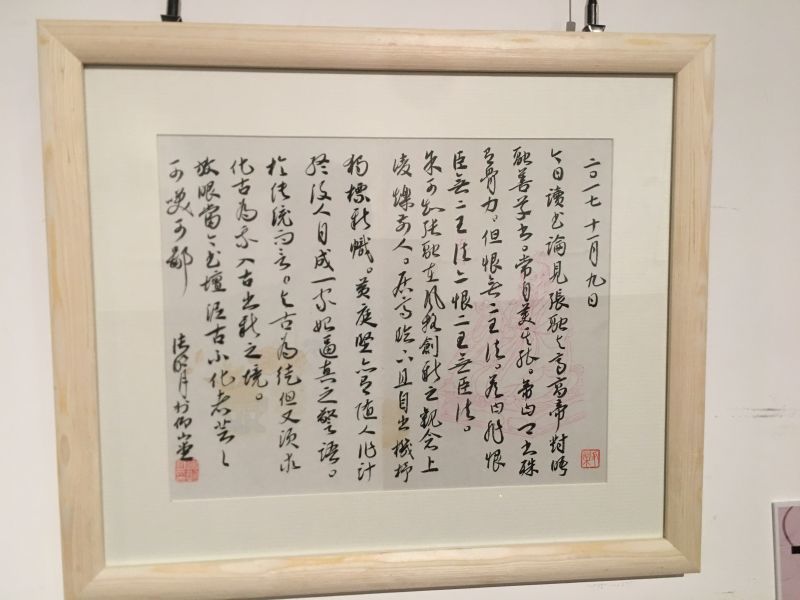 二〇一七 十一月九日
今日讀書論見張融與高帝對晤
融善草書。常自美其能。帝曰卿書殊
有骨力。但恨無二王法。答曰非恨
臣無二王法亦恨二王無臣法。
可知張融在風格創新之觀念上
凌爍前人。居高臨下且自出機杼
獨標新幟。黃庭堅亦有隨人作計
終後人自成一家始逼真之警語。
於傳統而言。與古為徒但又須求
化古為我入古出新之境。
放眼當今書壇泥古不化者芸芸
可笑可鄙
月於仰山